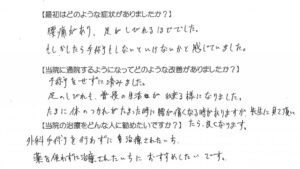 【最初はどのような症状がありましたか？】
腰痛があり、足がしびれるほどでした。
もしかしたら手術をしないといけないかと感じていました。
【当院に通院するようになってどのような改善がありましたか？】
手術をせずに済みました。
足のしびれも、普段の生活が出来る様になりました。
たまに体のつかれがたまった時に腰が痛くなる時がありますが 先生に見て頂い
たら、良くなります。
【当院の治療をどんな人に勧めたいですか？】
外科手術を行わずに治療されたい方、
薬を使わずに治療されたい方におすすめしたいです。